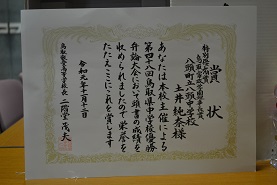 賞状
特別優勝賞
八頭町立八頭中学校
土井純奈様
あなたは本校主催による
第四十八回鳥取県中学校優勝
弁論大会において頭書の成績を
収められましたので栄誉を
たたえここにこれを賞します
令和元年十月十二日